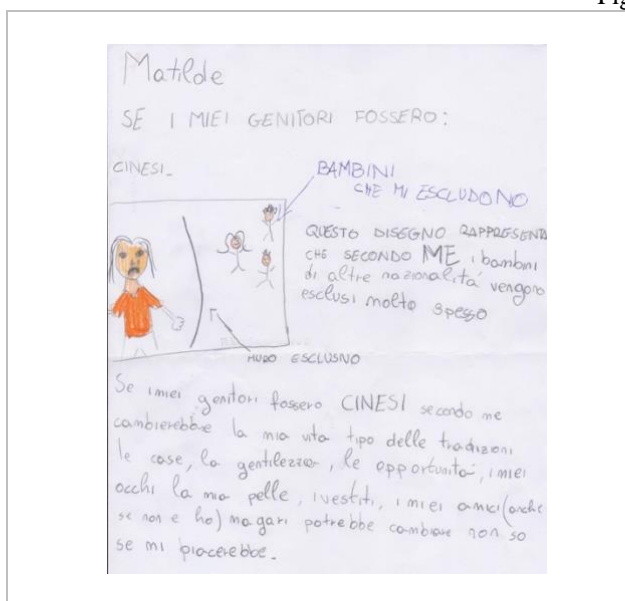 Fig
Matilde
SE I MIEI GENITORI FOSSERO:
CINESI_
BAMBINI
CHE MI ESCLUDONO
QUESTO DISEGNO RAPPRESENTA
CHE SECONDO ME i bambini
di altre nazionalità vengono
esclusi molto spesso
MURO ESCLUSNO
Se i miei genitori fossero CINESI secondo me
cambierebbe la mia vita tipo delle tradizioni
le case, la gentilezza, le opportunità, i miei
occhi la mia pelle, i vestiti, i miei amici (anche
se non e ho) magari potrebbe cambiare non so
se mi piacerebbe_